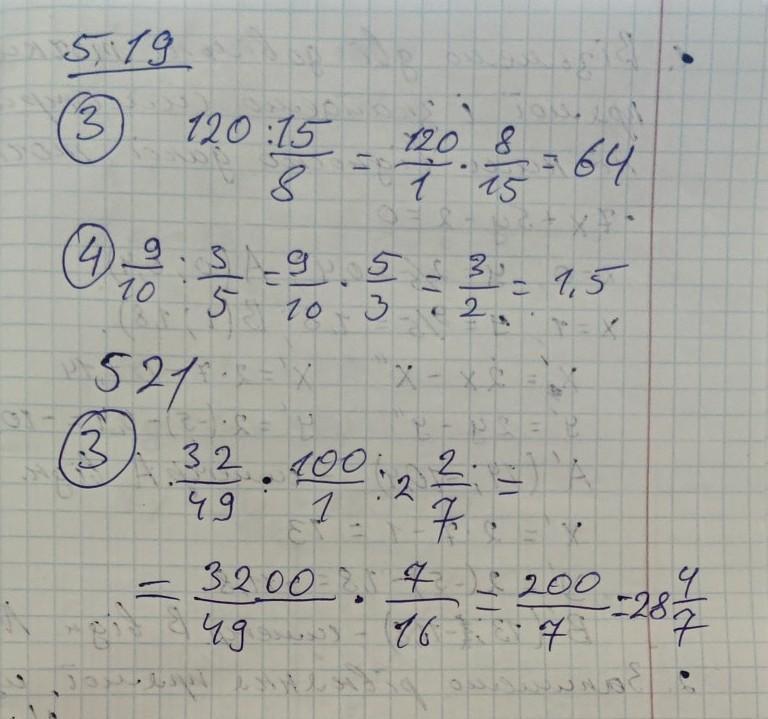 519
③ 120 : 15/8 = 120/1 · 8/15 = 64
④ 9/10 : 3/5 = 9/10 · 5/3 = 3/2 = 1,5
521
③ 32/49 · 100/1 : 2 2/7 =
= 3200/49 · 7/16 = 200/7 = 28 4/7